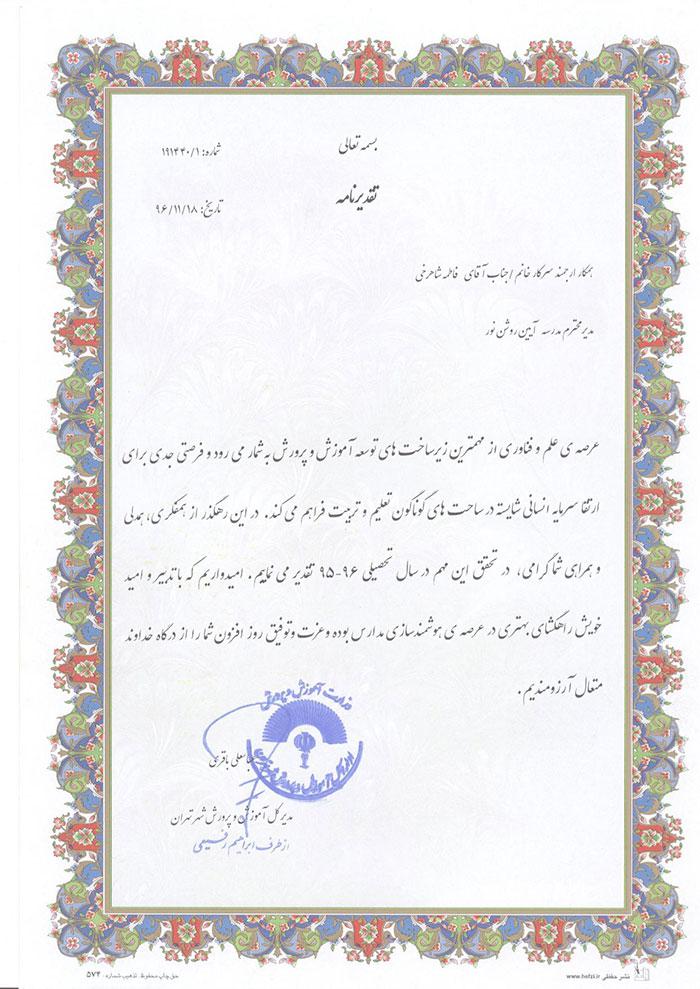 بسمه تعالی
شماره: ۱۹۱۴۴۰/۱
تقدیرنامه
تاریخ: ۹۶/۱۱/۱۸
همکار ارجمند سرکار خانم / جناب آقای فاطمه شاهرخی
مدیر محترم مدرسه آیین روشن نور
عرصه ی علم و فناوری از مهمترین زیرساخت های توسعه آموزش و پرورش به شمار می رود و فرصتی جدی برای
ارتقا سرمایه انسانی شایسته در ساحت های گوناگون تعلیم و تربیت فراهم می کند. در این رهگذر از همفکری، همدلی
و همراهی شما گرامی، در تحقق این مهم در سال تحصیلی ۹۶-۹۵ تقدیر می نماییم. امیدواریم که با تدبیر و امید
خویش راهگشای بهتری در عرصه ی هوشمندسازی مدارس بوده و عزت و توفیق روز افزون شما را از درگاه خداوند
متعال آرزومندیم.
وزارت آموزش و پرورش
باقری
مدیر کل آموزش و پرورش شهر تهران
از طرف ابراهیم رفیعی
نشر حفظی www.hefzi.ir
حق چاپ محفوظ. تذهیب شماره: ۵۷۴